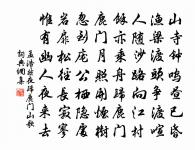 山寺钟鸣昼已昏
渔梁渡头争渡喧
人随沙路向江村
余亦乘舟归鹿门
鹿门月照开烟树
忽到庞公栖隐处
岩扉松径长寂寥
惟有幽人夜来去
孟浩然夜归鹿门山歌
词典网集